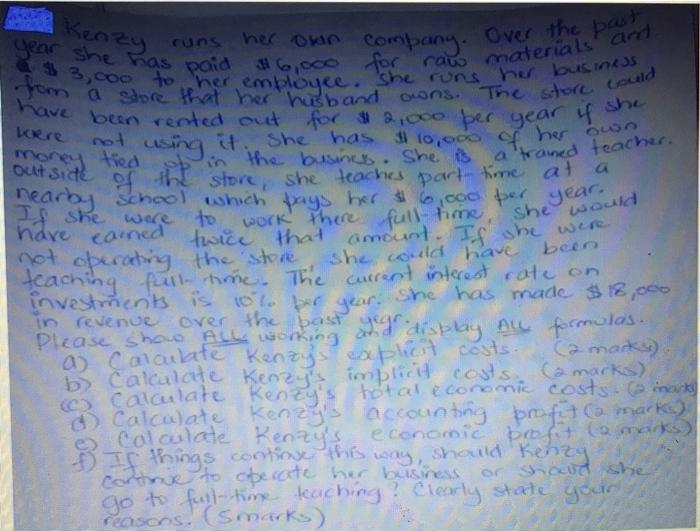 Kenzy runs her own company. Over the past
year she has paid $6,000 for raw materials and
$ 3,000 to her employee. She runs her business
from a store that her husband owns. The store could
have been rented out for $ 2,000 per year if she
were not using it. She has $ 10,000 of her own
money tied up in the business. She is a trained teacher.
outside of the store, she teaches part-time at a
nearby school which pays her $ 6,000 per year.
If she were to work there full-time, she would
have earned twice that amount. If she were
not operating the store, she could have been
teaching full-time. The current interest rate on
investments is 10% per year. She has made $18,000
in revenue over the past year.
Please show ALL working and display ALL formulas.
a) Calculate Kenzy's explicit costs. (2 marks)
b) Calculate Kenzy's implicit costs. (2 marks)
c) Calculate Kenzy's total economic costs. (2 mark
d) Calculate Kenzy's accounting profit (2 marks)
e) Calculate Kenzy's economic profit (2 marks)
f) If things continue this way, should Kenzy
continue to operate her business or should she
go to full-time teaching? Clearly state your
reasons. (5marks)